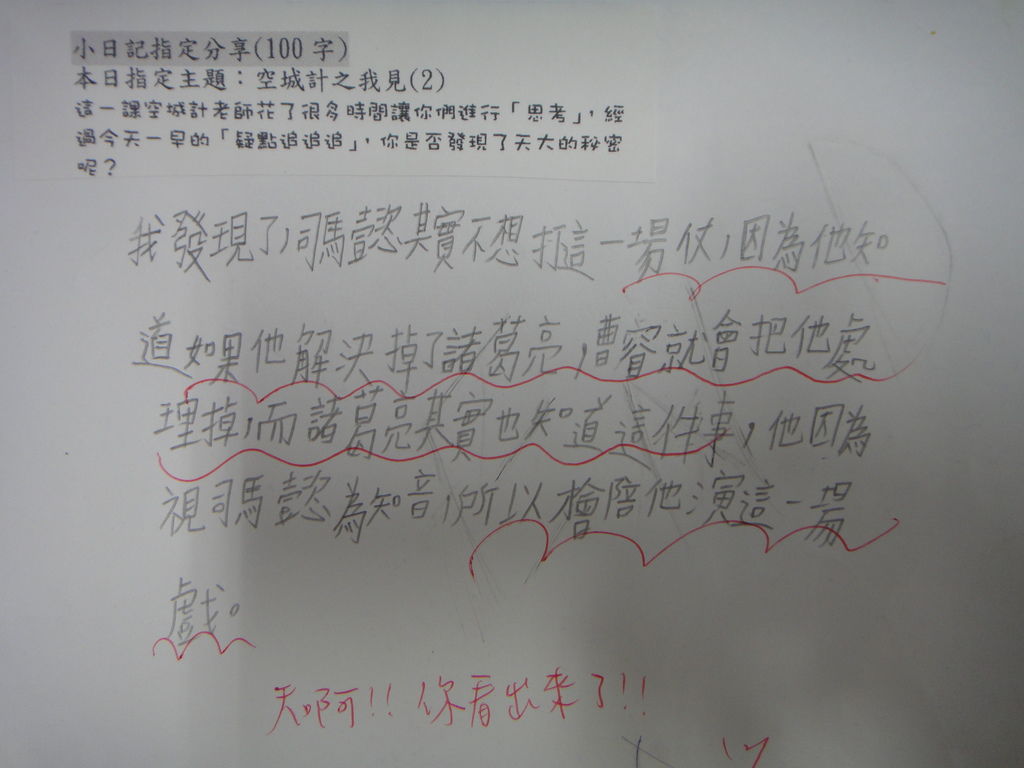 小日記指定分享(100 字)
本日指定主題：空城計之我見(2)
這一課空城計老師花了很多時間讓你們進行「思考」，經
過今天一早的「疑點追追追」，你是否發現了天大的秘密
呢？
我發現了，司馬懿其實不想打這一場仗，因為他知
道如果他解決掉了諸葛亮，曹睿就會把他處
理掉，而諸葛亮其實也知道這件事，他因為
視司馬懿為知音，所以會陪他演這一場
戲。
天啊!!你看出來了!!